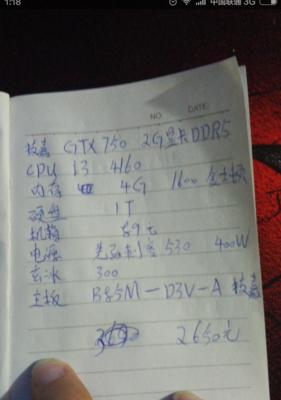 1:18 中国联通 3G
NO. DATE:
技嘉 GTX 750 2G显卡DDR5
CPU i3 4160
内存 4G 1600 金士顿
硬盘 1T
机箱 89元
电源 先马 530 400W
玄冰 300
主板 B85M-D3V-A 技嘉
2650元